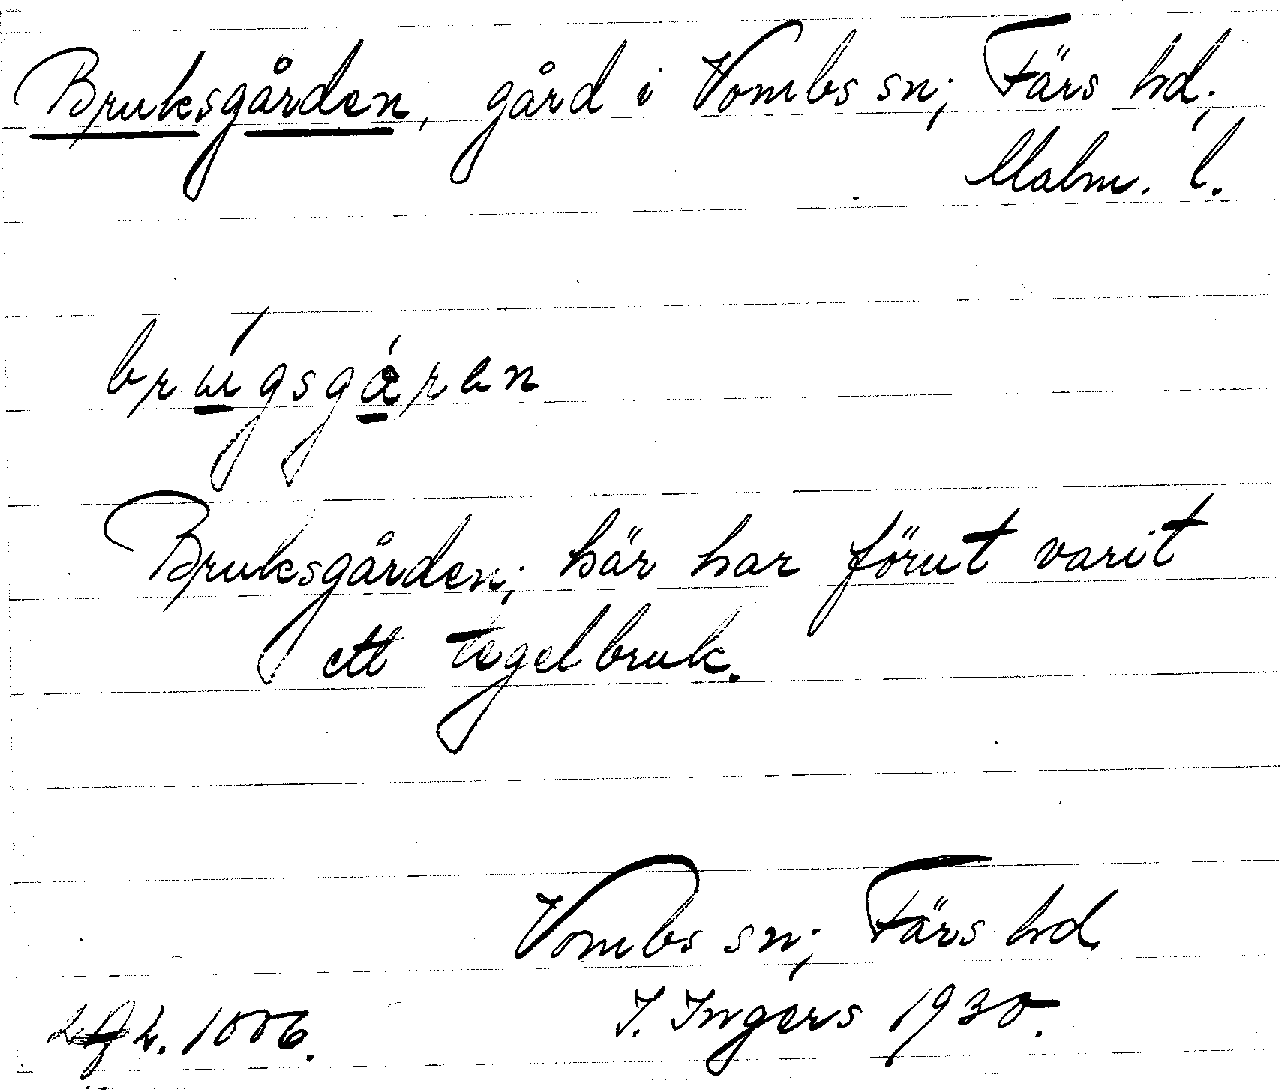 Bruksgården, gård i Vombs sn; Färs hd;
Malm. l.
brɯ́gsgáꞃan
Bruksgården; här har förut varit
ett tegelbruk.
Vombs sn; Färs hd
I. Ingers 1930.
1006.